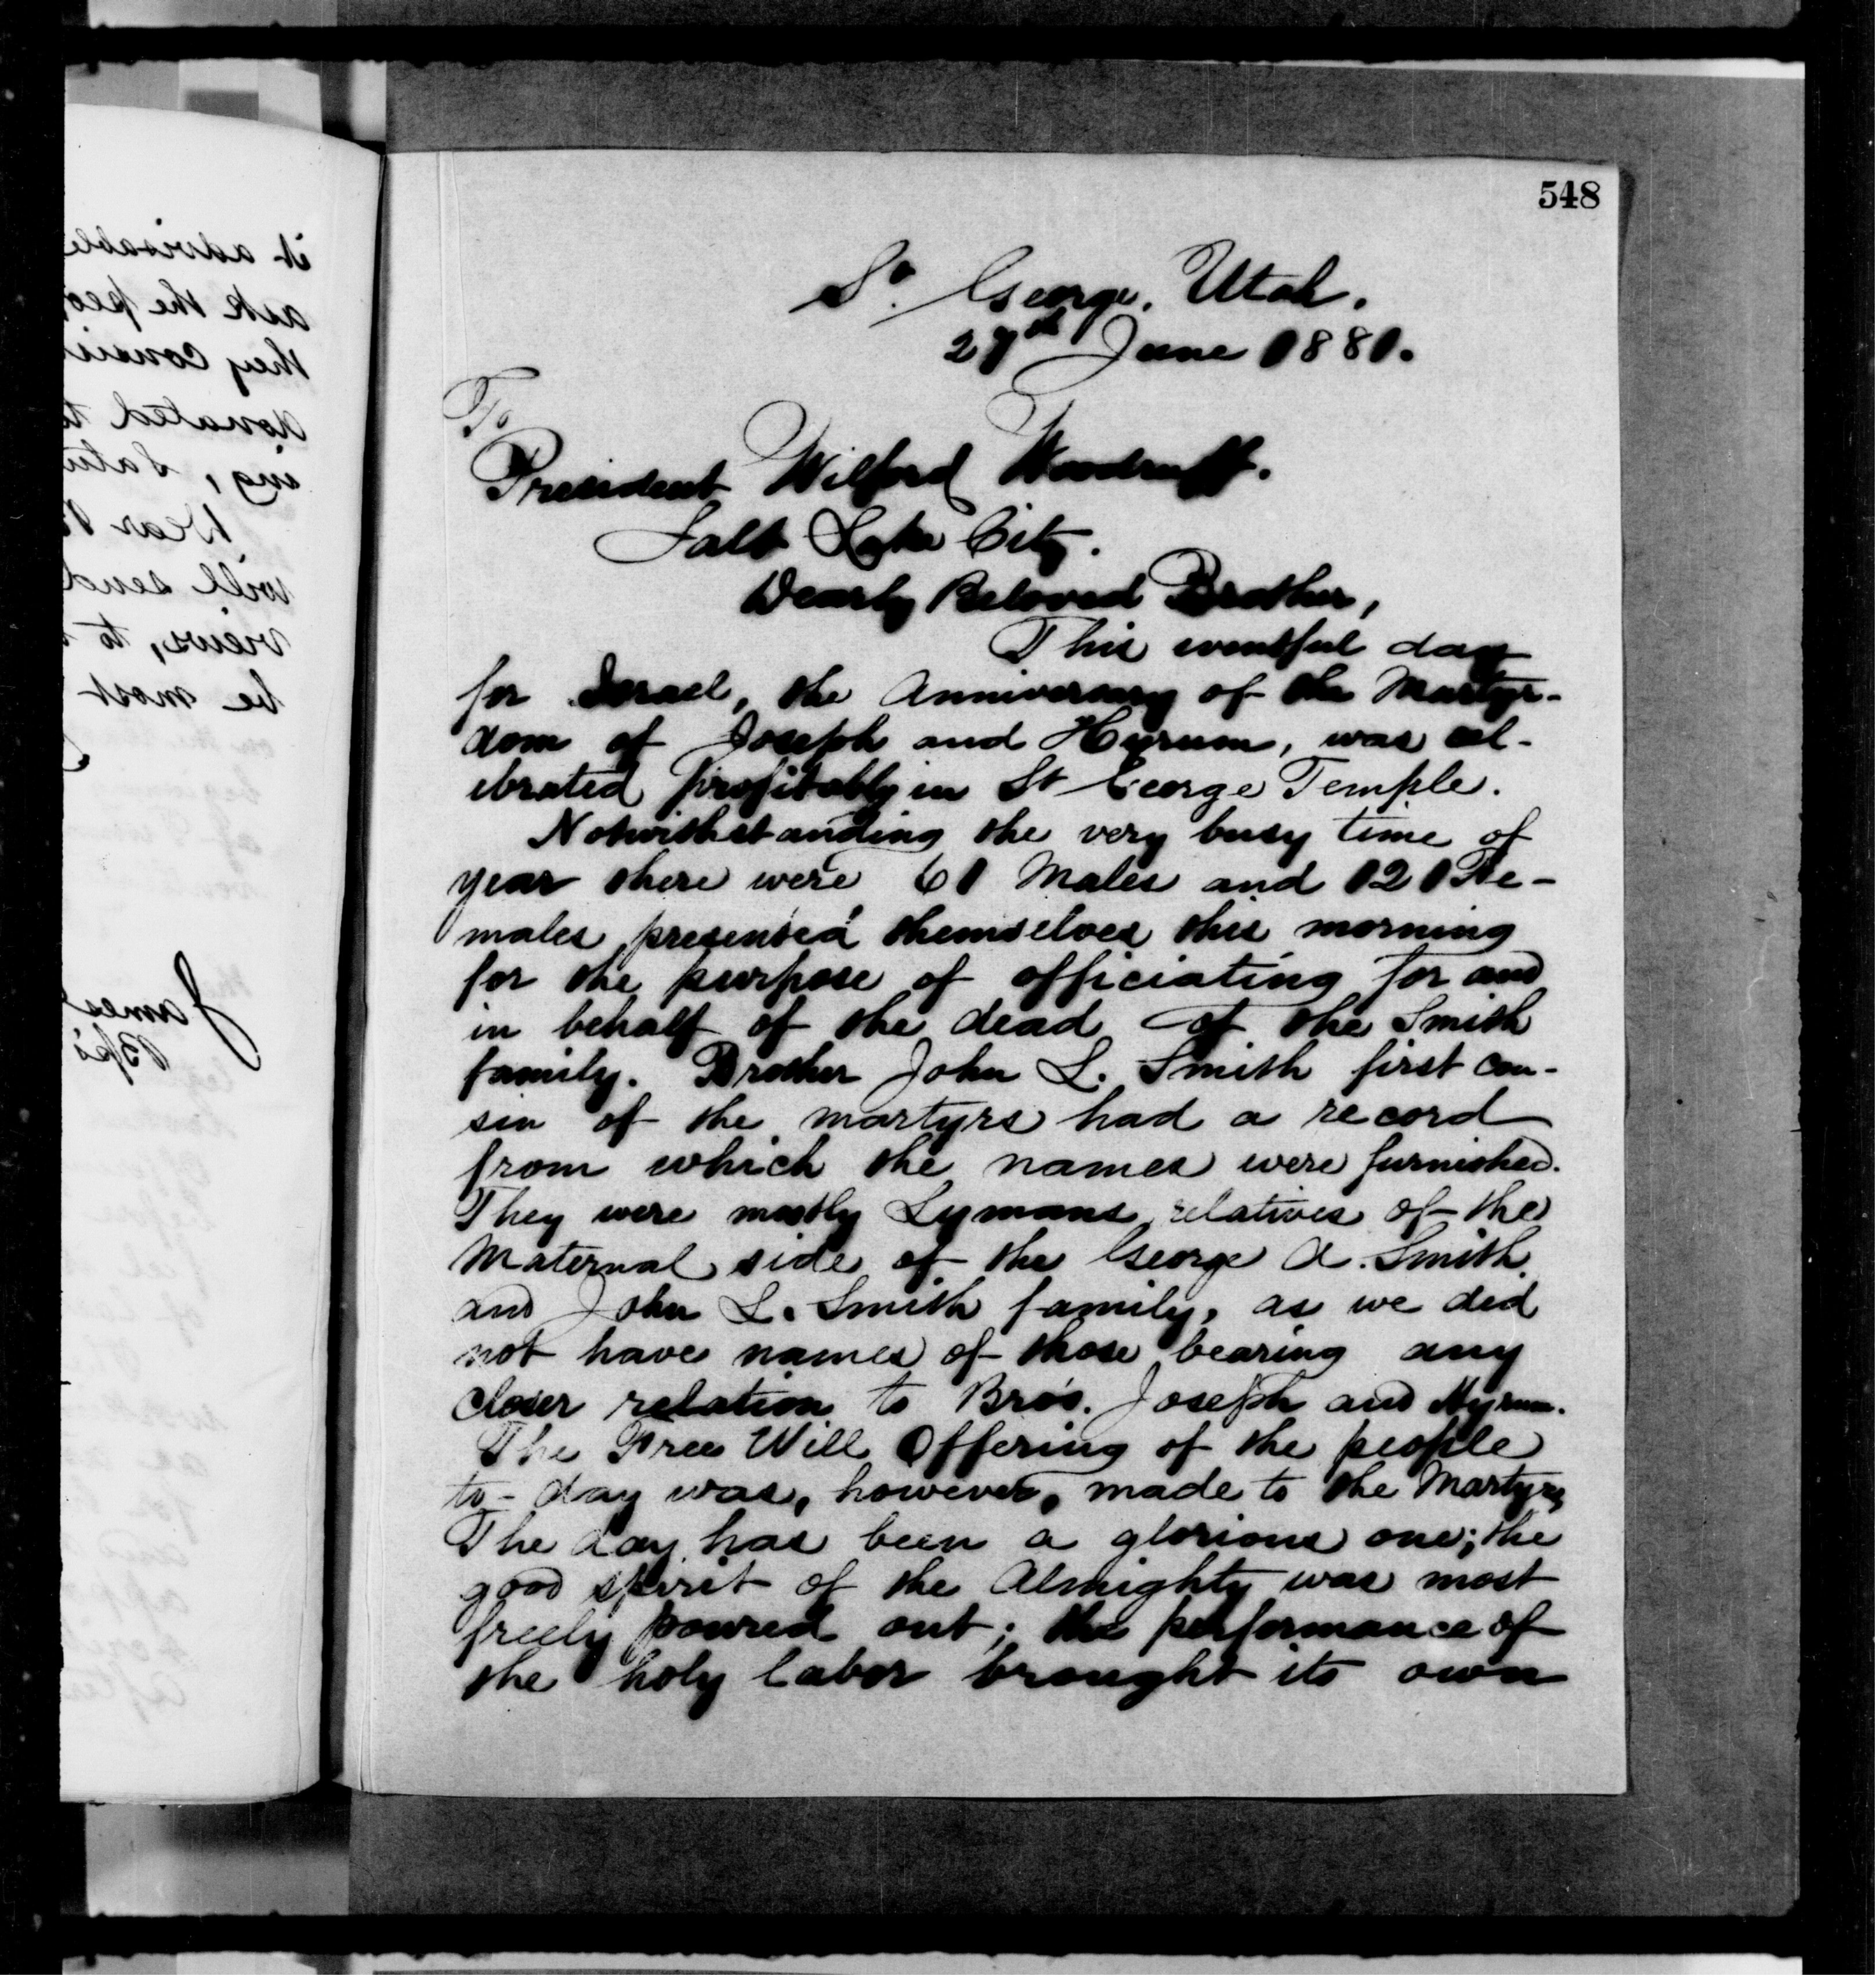 548
St. George, Utah.
27th June 1881.
To
President Wilford Woodruff.
Salt Lake City.
Dearly Beloved Brother,
This eventful day
for Israel, the Anniversary of the Martyr-
dom of Joseph and Hyrum, was cel-
ebrated profitably in St George Temple.
Notwithstanding the very busy time of
year there were 61 Males and 121 Fe-
males presented themselves this morning
for the purpose of officiating for and
in behalf of the dead of the Smith
family. Brother John L. Smith first cou-
sin of the martyrs had a record
from which the names were furnished.
They were mostly Lymans relatives of the
Maternal side of the George A. Smith
and John L. Smith family, as we did
not have names of those bearing any
closer relation to Bro's. Joseph and Hyrum.
The Free Will Offering of the people
to-day was, however, made to the Martyrs,
The day has been a glorious one; the
good spirit of the Almighty was most
freely poured out; the performance of
the holy labor brought its own
it advisable
ask the peo
they consi
donated t
ing,
will send
views, to
be most
James